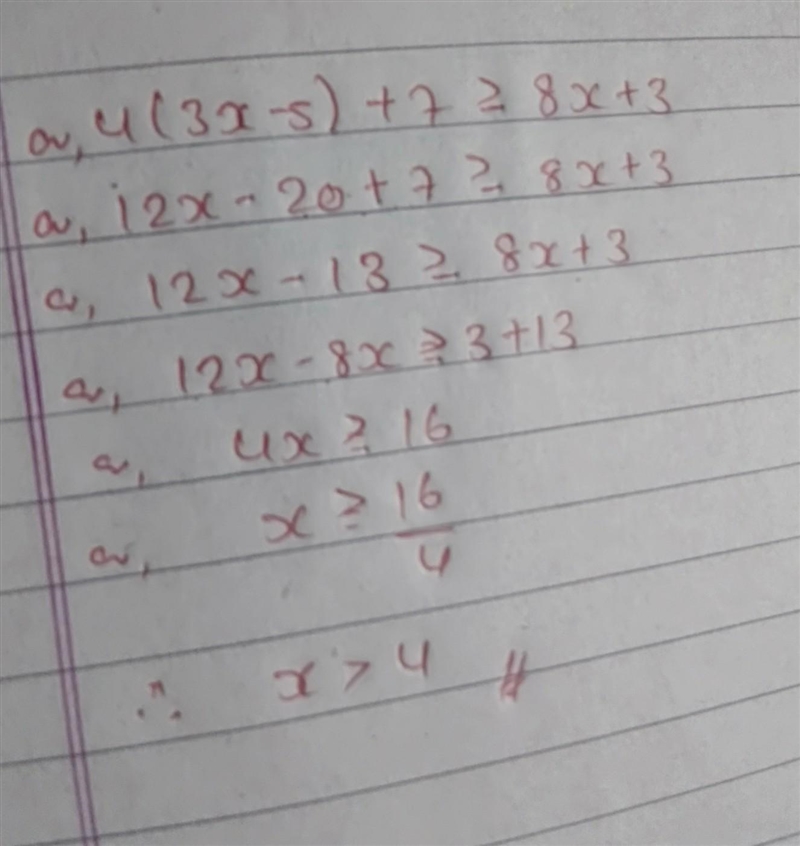 or, 4(3x-5) + 7 ≥ 8x+3
or, 12x - 20 + 7 ≥ 8x+3
or, 12x - 13 ≥ 8x+3
or, 12x - 8x ≥ 3+13
or, 4x ≥ 16
or, x ≥ 16/4
∴ x > 4 #